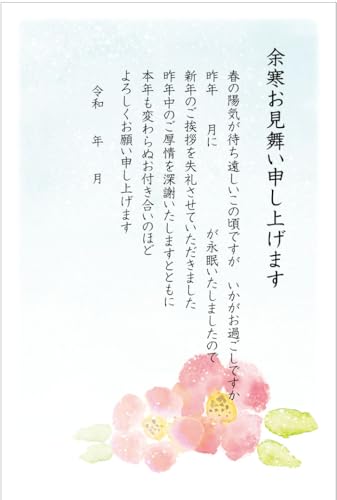 余寒お見舞い申し上げます
春の陽気が待ち遠しいこの頃ですが　いかがお過ごしですか
昨年　　月に　　　　　　が永眠いたしましたので
新年のご挨拶を失礼させていただきました
昨年中のご厚情を深謝いたしますとともに
本年も変わらぬお付き合いのほど
よろしくお願い申し上げます
令和　　年　　月